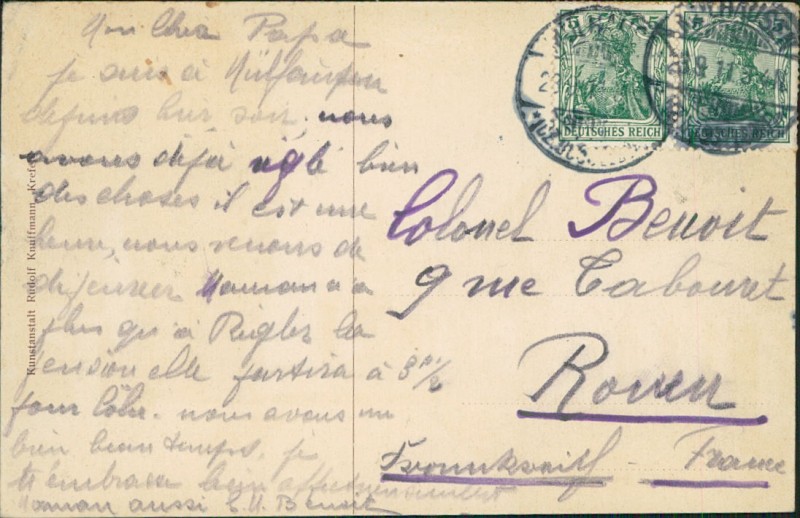 Mon Cher Papa
je suis à Mülhausen
depuis hier soir. nous
avons déjà réglé bien
des choses il est une
heure, nous venons de
déjeuner Maman n'a
plus qu'à Régler la
pension elle partira à 3 h 1/2
pour Côln. nous avons un
bien beau temps. je
t'embrasse bien affectueusement
Maman aussi E. H. Benoit
Kunstanstalt Rudolf Knuffmann, Krefeld
DEUTSCHES REICH
DEUTSCHES REICH
Colonel Benoit
9 rue Tabouret
Rouen
France